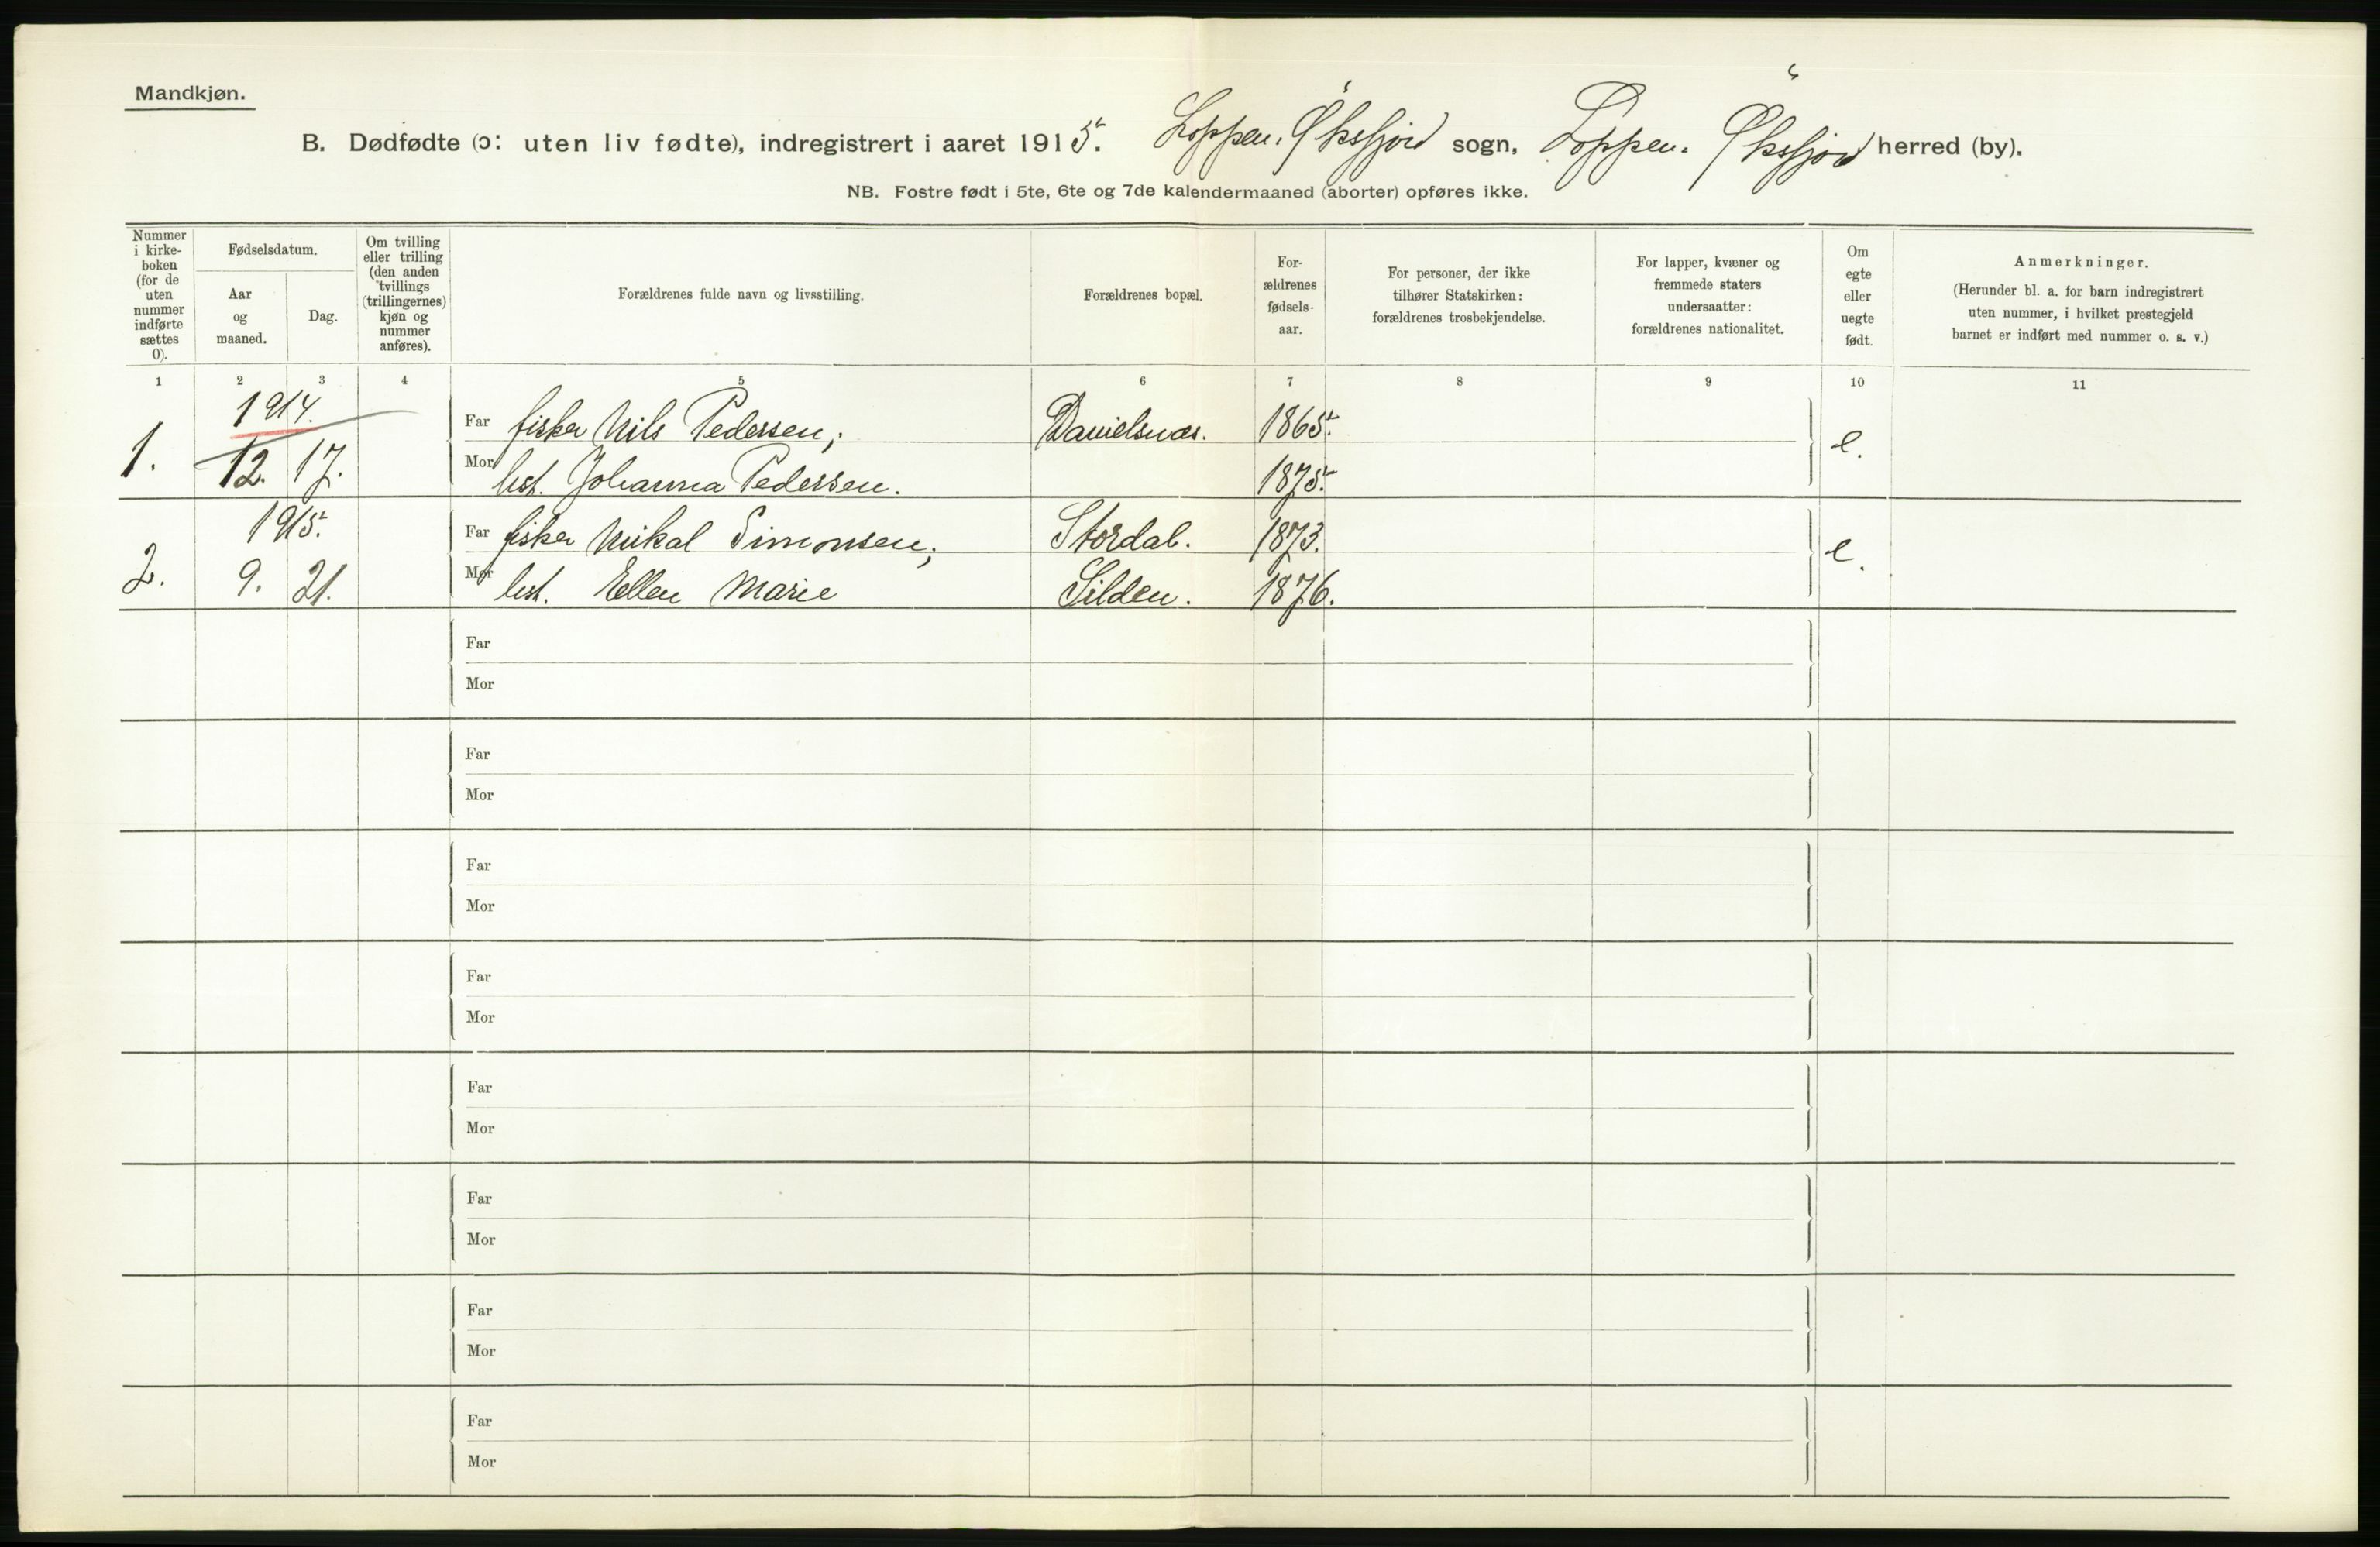 Mandkjøn.
B. Dødfødte (ɔ: uten liv fødte), indregistrert i aaret 1915. Loppen. Øksfjord sogn, Loppen. Øksfjord herred (by).
NB. Fostre født i 5te, 6te og 7de kalendermaaned (aborter) opføres ikke.
Nummer
i kirke-
boken
(for de
uten
nummer
indførte
sættes
0).
Fødselsdatum.
Aar
og
maaned.
Dag.
Om tvilling
eller trilling
(den anden
tvillings
(trillingernes)
kjøn og
nummer
anføres).
Forældrenes fulde navn og livsstilling.
Forældrenes bopæl.
For-
ældrenes
fødsels-
aar.
For personer, der ikke
tilhører Statskirken:
forældrenes trosbekjendelse.
For lapper, kvæner og
fremmede staters
undersaatter:
forældrenes nationalitet.
Om
egte
eller
uegte
født.
Anmerkninger.
(Herunder bl. a. for barn indregistrert
uten nummer, i hvilket prestegjeld
barnet er indført med nummer o. s. v.)
1 2 3 4 5 6 7 8 9 10 11
1914.
Far fisker Nils Pedersen, Danielsnæs. 1865.
1. 12. 17. Mor hst. Johanna Pedersen. 1875. e.
1915.
Far fisker Mikal Simonsen, Stordal. 1873.
2. 9. 21. Mor hst. Ellen Marie Silden. 1876. e.
Far
Mor
Far
Mor
Far
Mor
Far
Mor
Far
Mor
Far
Mor
Far
Mor
Far
Mor